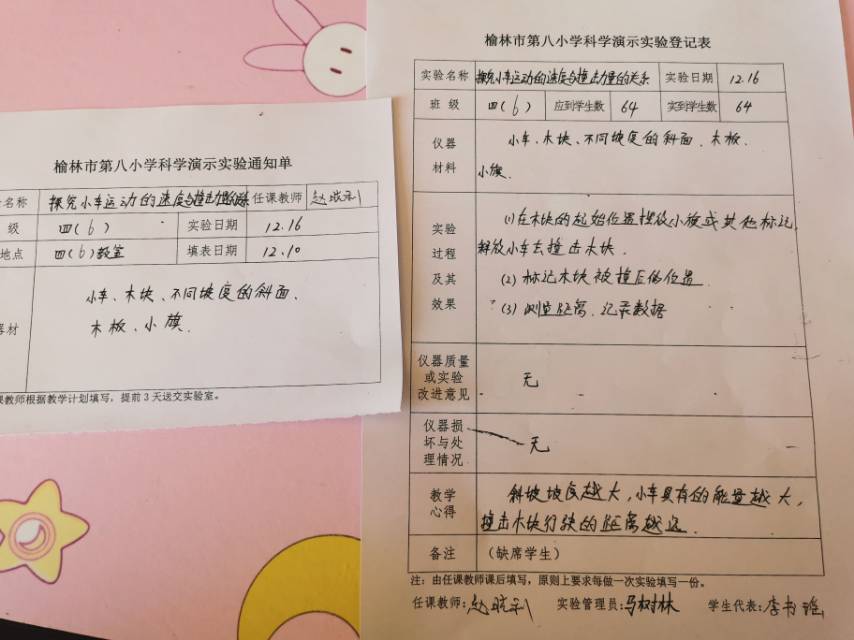 榆林市第八小学科学演示实验通知单
名称 探究小车运动的速度与撞击力量的关系 任课教师
级 四(6) 实验日期 12.16
地点 四(6)教室 填表日期 12.10
器材 小车、木块、不同坡度的斜面、
木板、小旗.
课教师根据教学计划填写，提前3天送交实验室。
榆林市第八小学科学演示实验登记表
实验名称 探究小车运动的速度与撞击力量的关系 实验日期 12.16
班级 四(6) 应到学生数 64 实到学生数 64
仪器材料 小车、木块、不同坡度的斜面、木板、
小旗.
实验过程及其效果 (1)在木块的起始位置摆放小旗或其他标记,
释放小车去撞击木块.
(2)标记木块被撞后的位置
(3)测量距离、记录数据
仪器质量或实验改进意见 无
仪器损坏与处理情况 无
教学心得 斜坡坡度越大,小车具有的能量越大,
撞击木块行驶的距离越远.
备注 （缺席学生）
注：由任课教师课后填写，原则上要求每做一次实验填写一份。
任课教师: 实验管理员:马树林 学生代表:李书